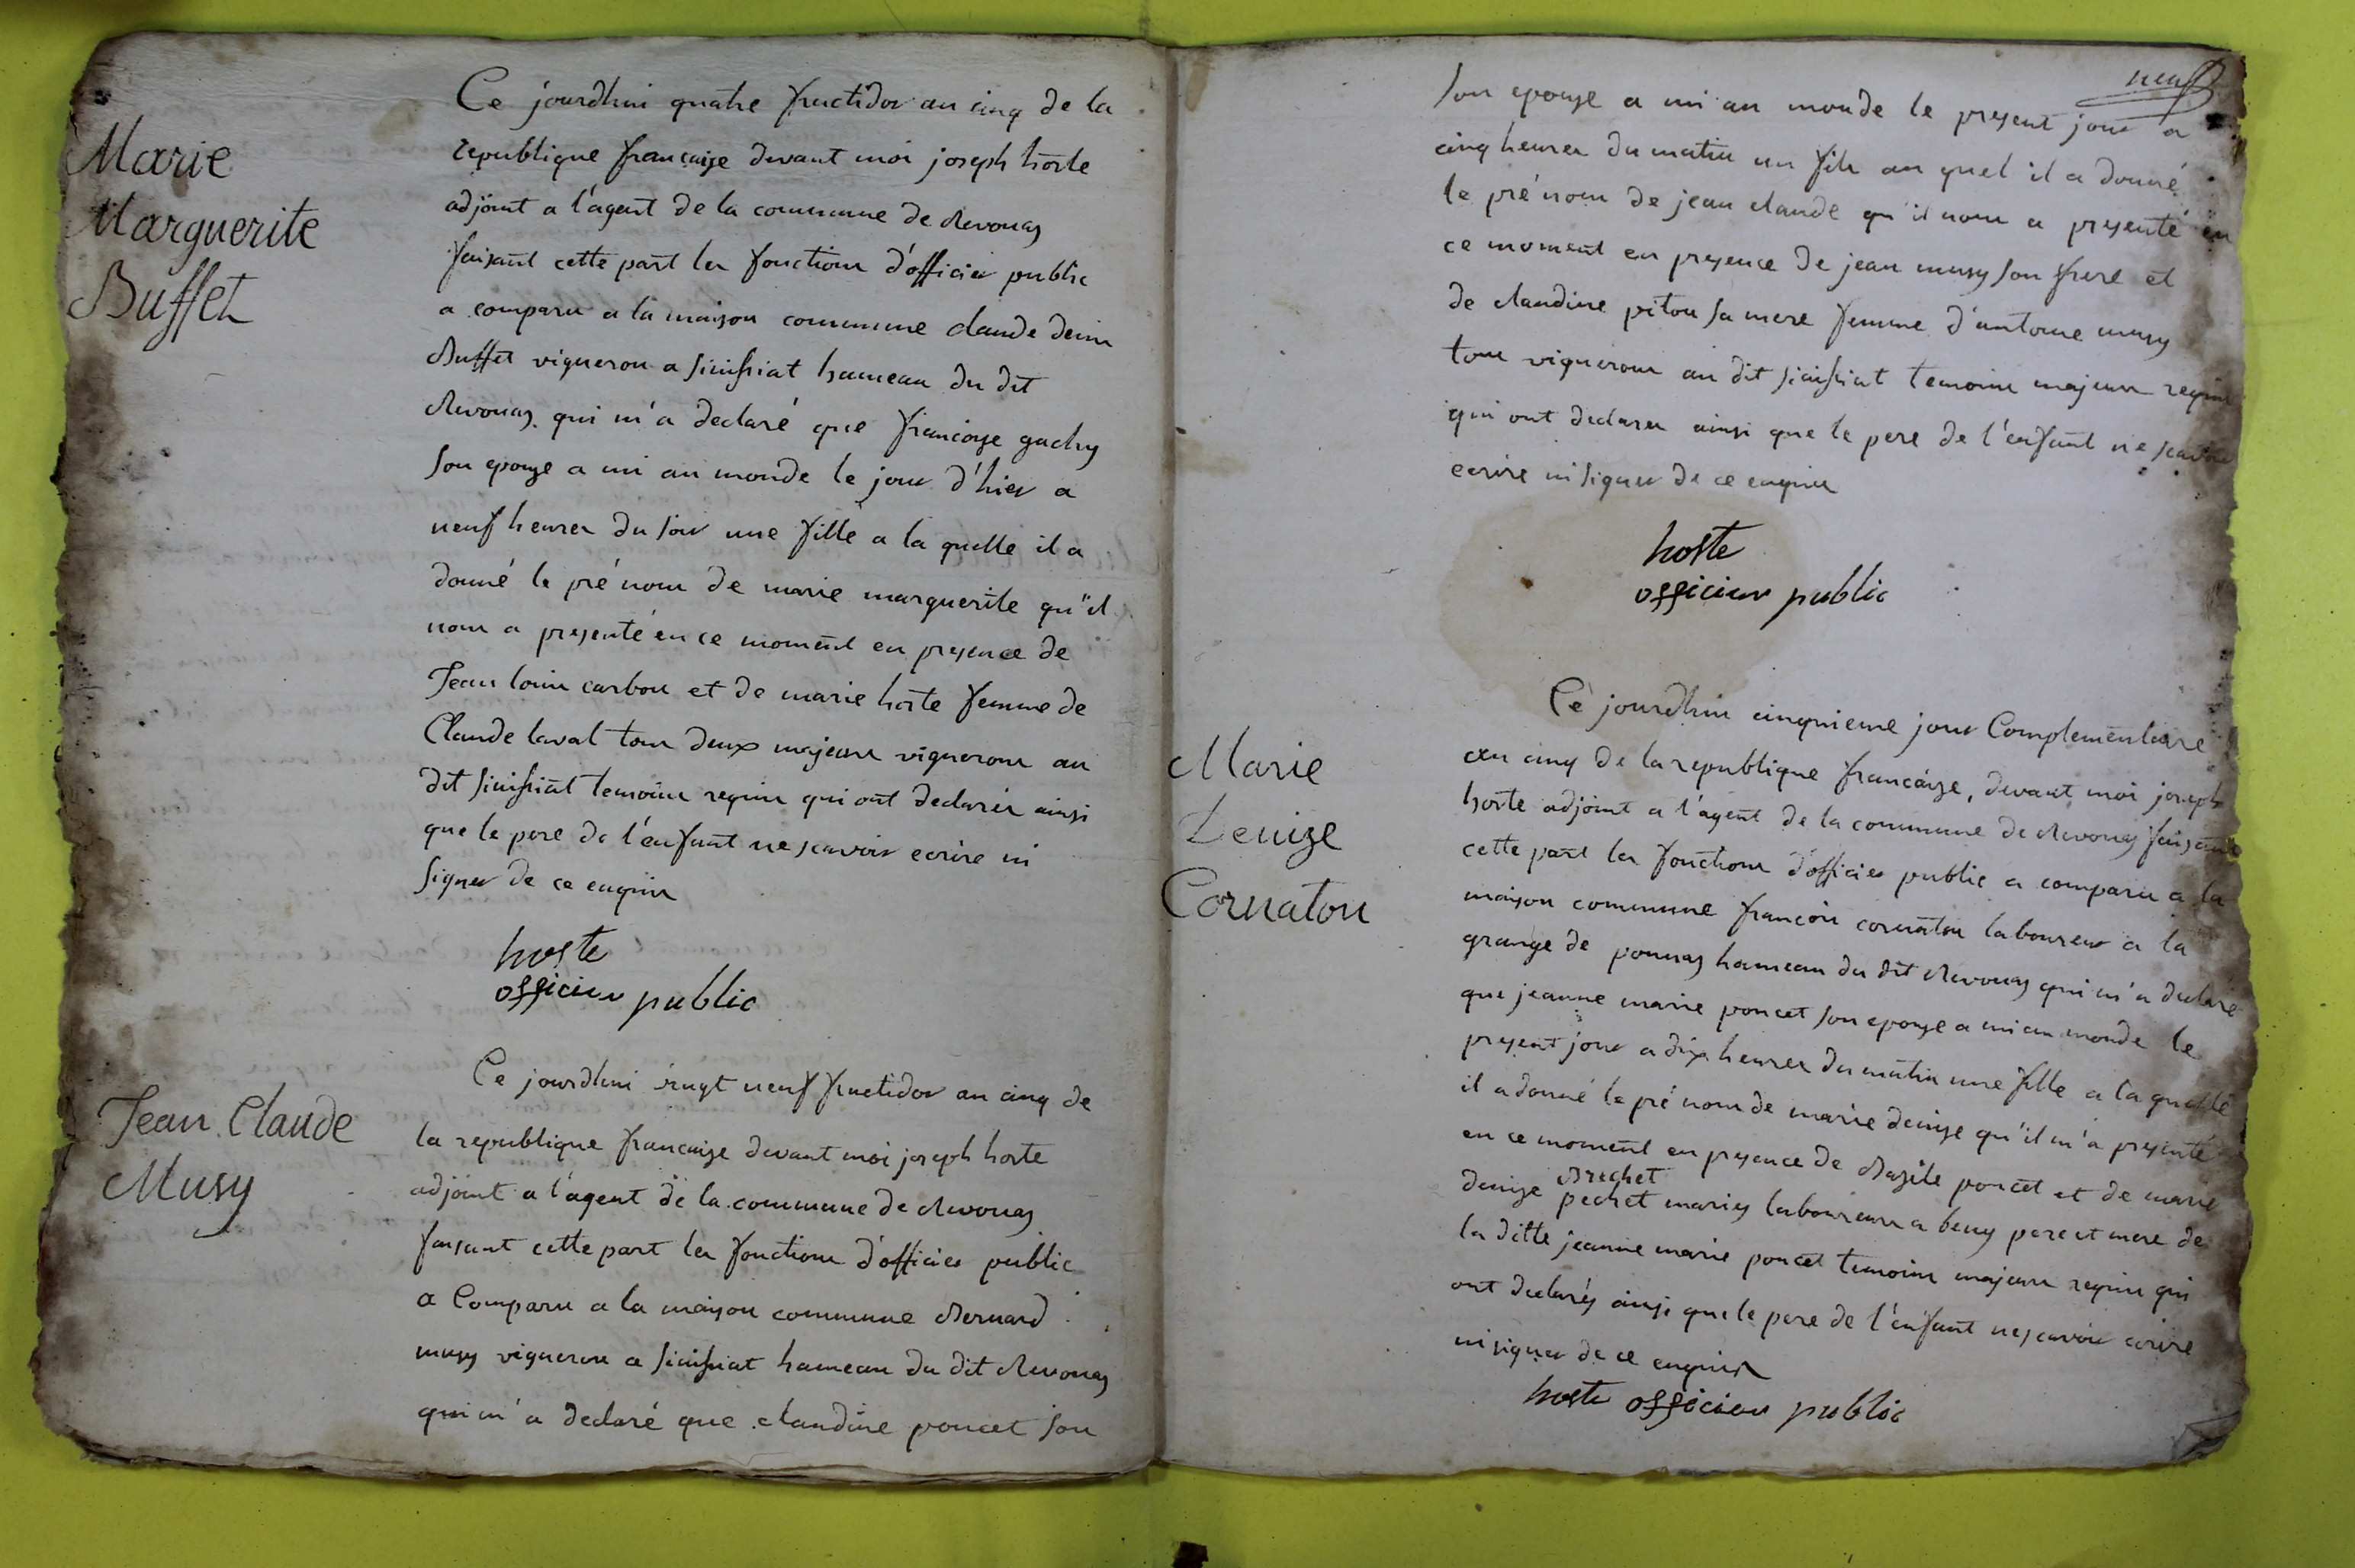 Marie
Marguerite
Buffet
Ce jourdhui quatre fructidor an cinq de la
republique francaise devant moi joseph hoste
adjoint a l'agent de la commune de Revonas
faisant cette part les fonctions d'officier public
a comparu a la maison commune claude denis
Buffet vigneron a Sinissiat hameau du dit
Revonas qui m'a declaré que francoise gachy
son epouse a mis au monde le jour d'hier a
neuf heures du soir une fille a la quelle il a
donné le pré nom de marie marguerite qu'il
nous a presenté en ce moment en presence de
Jean louis carbon et de marie hoste femme de
Claude laval tous deux majeurs vignerons au
dit Sinissiat temoins requis qui ont declarés ainsi
que le pere de l'enfant ne scavoir ecrire ni
signer de ce enquis
hoste
officier public
Jean Claude
Musy
Ce jourdhui vingt neuf fructidor an cinq de
la republique francaise devant moi joseph hoste
adjoint a l'agent de la commune de Revonas
faisant cette part les fonctions d'officier public
a Comparu a la maison commune Bernard
musy vigneron a Sinissiat hameau du dit Revonas
qui m'a declaré que claudine poncet son
neuf
son epouse a mis au monde le present jour a
cinq heures du matin un fils au quel il a donné
le pré nom de jean claude qu'il nous a presenté en
ce moment en presence de jean musy son frere et
de claudine piton sa mere femme d'antoine musy
tous vignerons au dit sinissiat temoins majeurs requis
qui ont declarés ainsi que le pere de l'enfant ne scavoir
ecrire ni signer de ce enquis
hoste
officier public
Marie
Denize
Cornaton
Ce jourdhui cinquieme jour Complementaire
an cinq de la republique francaise, devant moi joseph
hoste adjoint a l'agent de la commune de Revonas faisant
cette part les fonctions d'officier public a comparu a la
maison commune francois cornaton laboureur a la
grange de ponnas hameau du dit Revonas qui m'a declaré
que jeanne marie poncet son epouse a mis au monde le
present jour a dix heures du matin une fille a la quelle
il a donné le pré nom de marie denise qu'il m'a presenté
en ce moment en presence de Bazile poncet et de marie
Brechet
denise pechet maries laboureurs a beny pere et mere de
la ditte jeanne marie poncet temoins majeurs requis qui
ont declarés ainsi que le pere de l'enfant ne scavoir ecrire
ni signer de ce enquis
hoste officier public